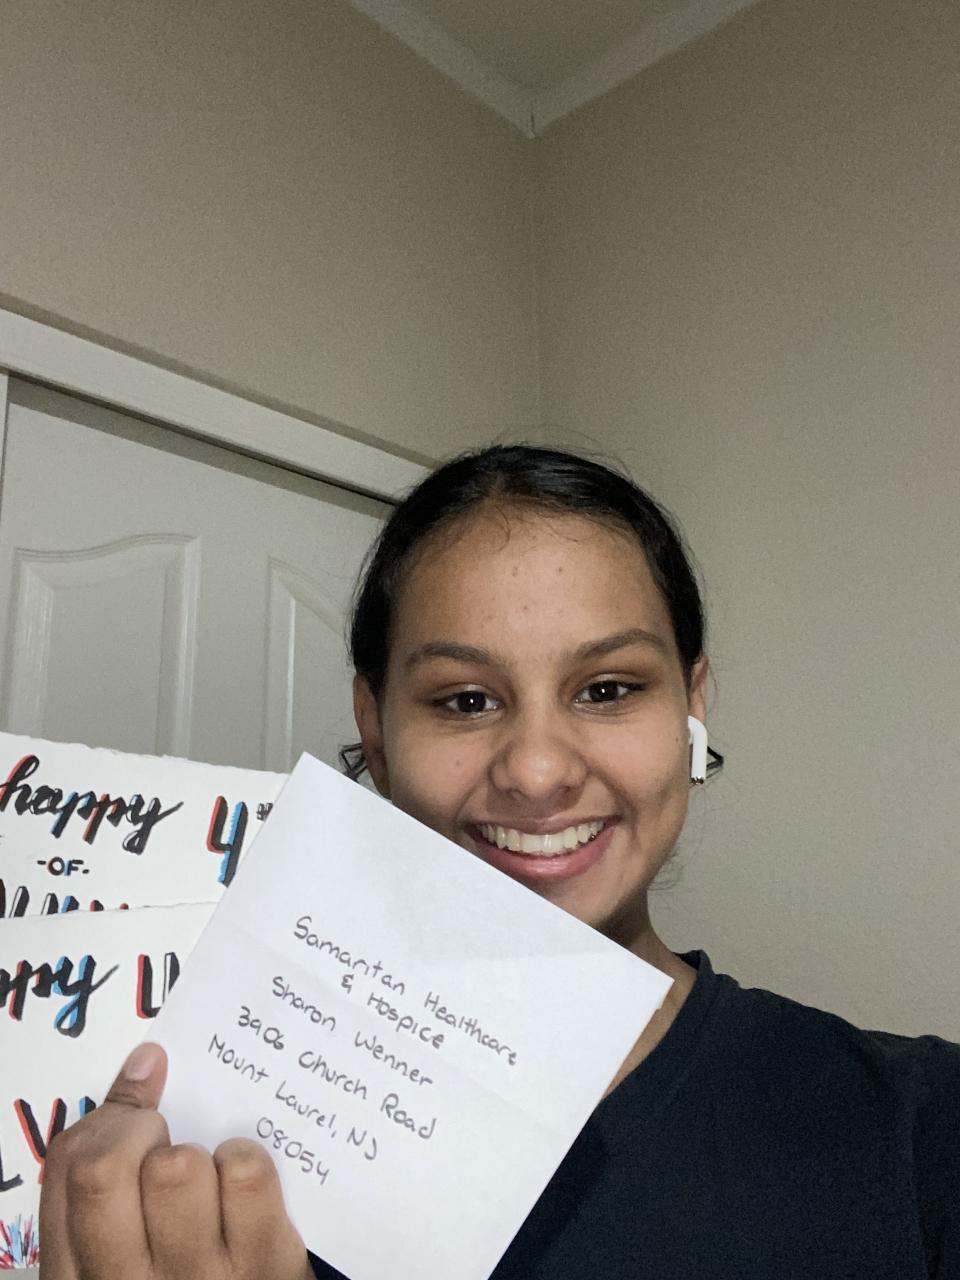 happy 4th
-OF-
Samaritan Healthcare
& Hospice
Sharon Wenner
3906 Church Road
Mount Laurel, NJ
08054